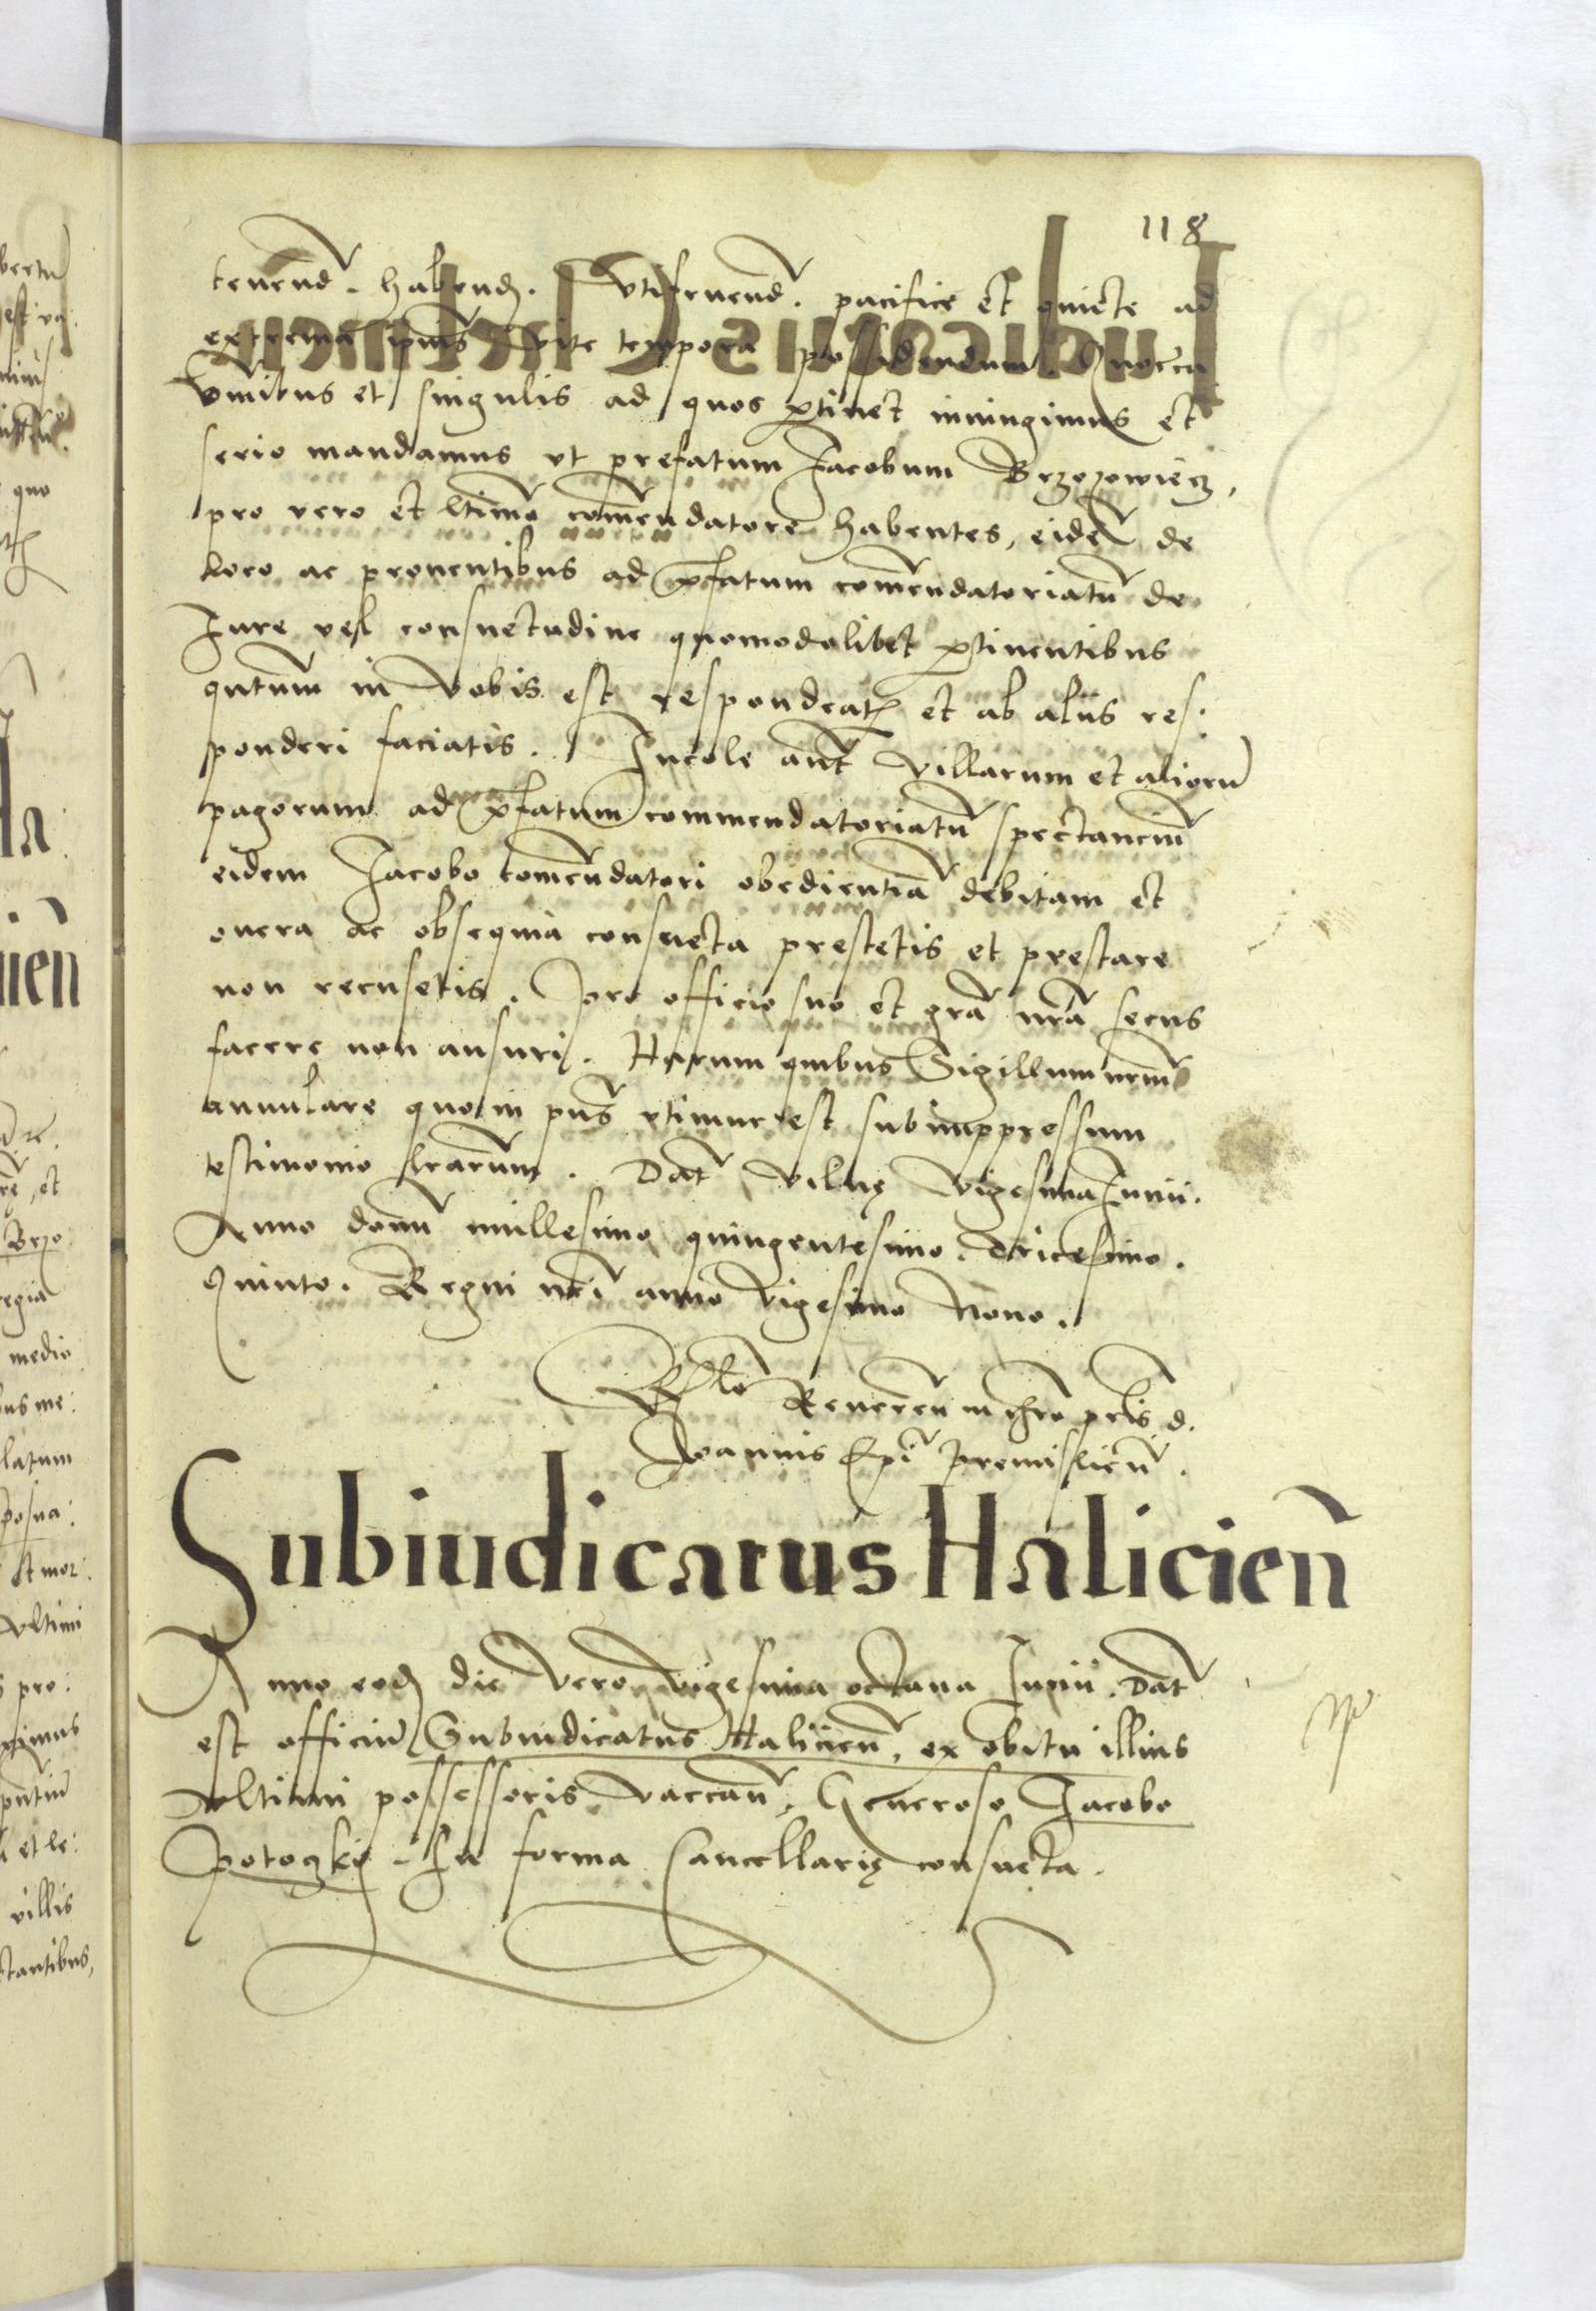 118
tenend. habend. Utifruend. pacifice et quiete ad
extrema ipius vite tempora possidendum. Quocca
vnibus et singulis ad quos ptinet iniungimus et
serio mandamus vt prefatum Jacobum Brzozowiecz,
pro vero et ltimo comendatore habentes, eidem de
loco ac prouentibus ad pfatum comendatoriatu de
Iure vel consuetudine quomodolibet ptinentibus
qntum in vobis est respondeatis et ab aliis res.
ponderi faciatis. Incole aut villarum et alioru
pagorum ad pfatum commendatoriatu spectancium
eidem Jacobo comendatori obedientia debitam et
onera ac obsequia consueta prestetis et prestare
non recusetis. pro officio suo et gra nra secus
facere non ausuri. Harum quibus Sigillum nrum
annulare quo in pns vtimur est subimppressum
testimonio lrarum. Dat vilnę vigesima Junii.
Anno domi millesimo quingentesimo. tricesimo.
Quinto. Regni nri anno vigesimo Nono.
Rlo Reueren in chro pris d.
Joannis Epi Premislien.
Subiudicatus Halicien
Anno eod die vero vigesima octaua Junii. Dat
est officiu Subiudicatus Halicien, ex obitu illius
vltimi possessoris vaccan, Generoso Jacobo
Potoczki - In forma Cancellarię consueta.